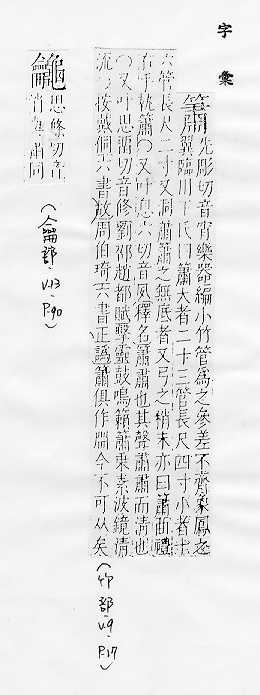 字彙
簫 先彫切音宵樂器編小竹管爲之參差不齊象鳳之
翼臨川丁氏曰簫大者二十三管長尺四寸小者十
六管長尺二寸又洞簫簫之無底者又弓之稍末亦曰簫曲禮
右手執簫〇又叶息六切音夙釋名簫肅也其聲肅肅而清也
〇又叶思酒切音修劉邵趙都賦擊靈鼓鳴籟簫乘素波鏡清
流〇按戴侗六書故周伯琦六書正譌簫俱作𠕀今不可从矣
(竹部·V.9·P.17)
思條切音
宵與簫同
(龠部·V.13·P.90)